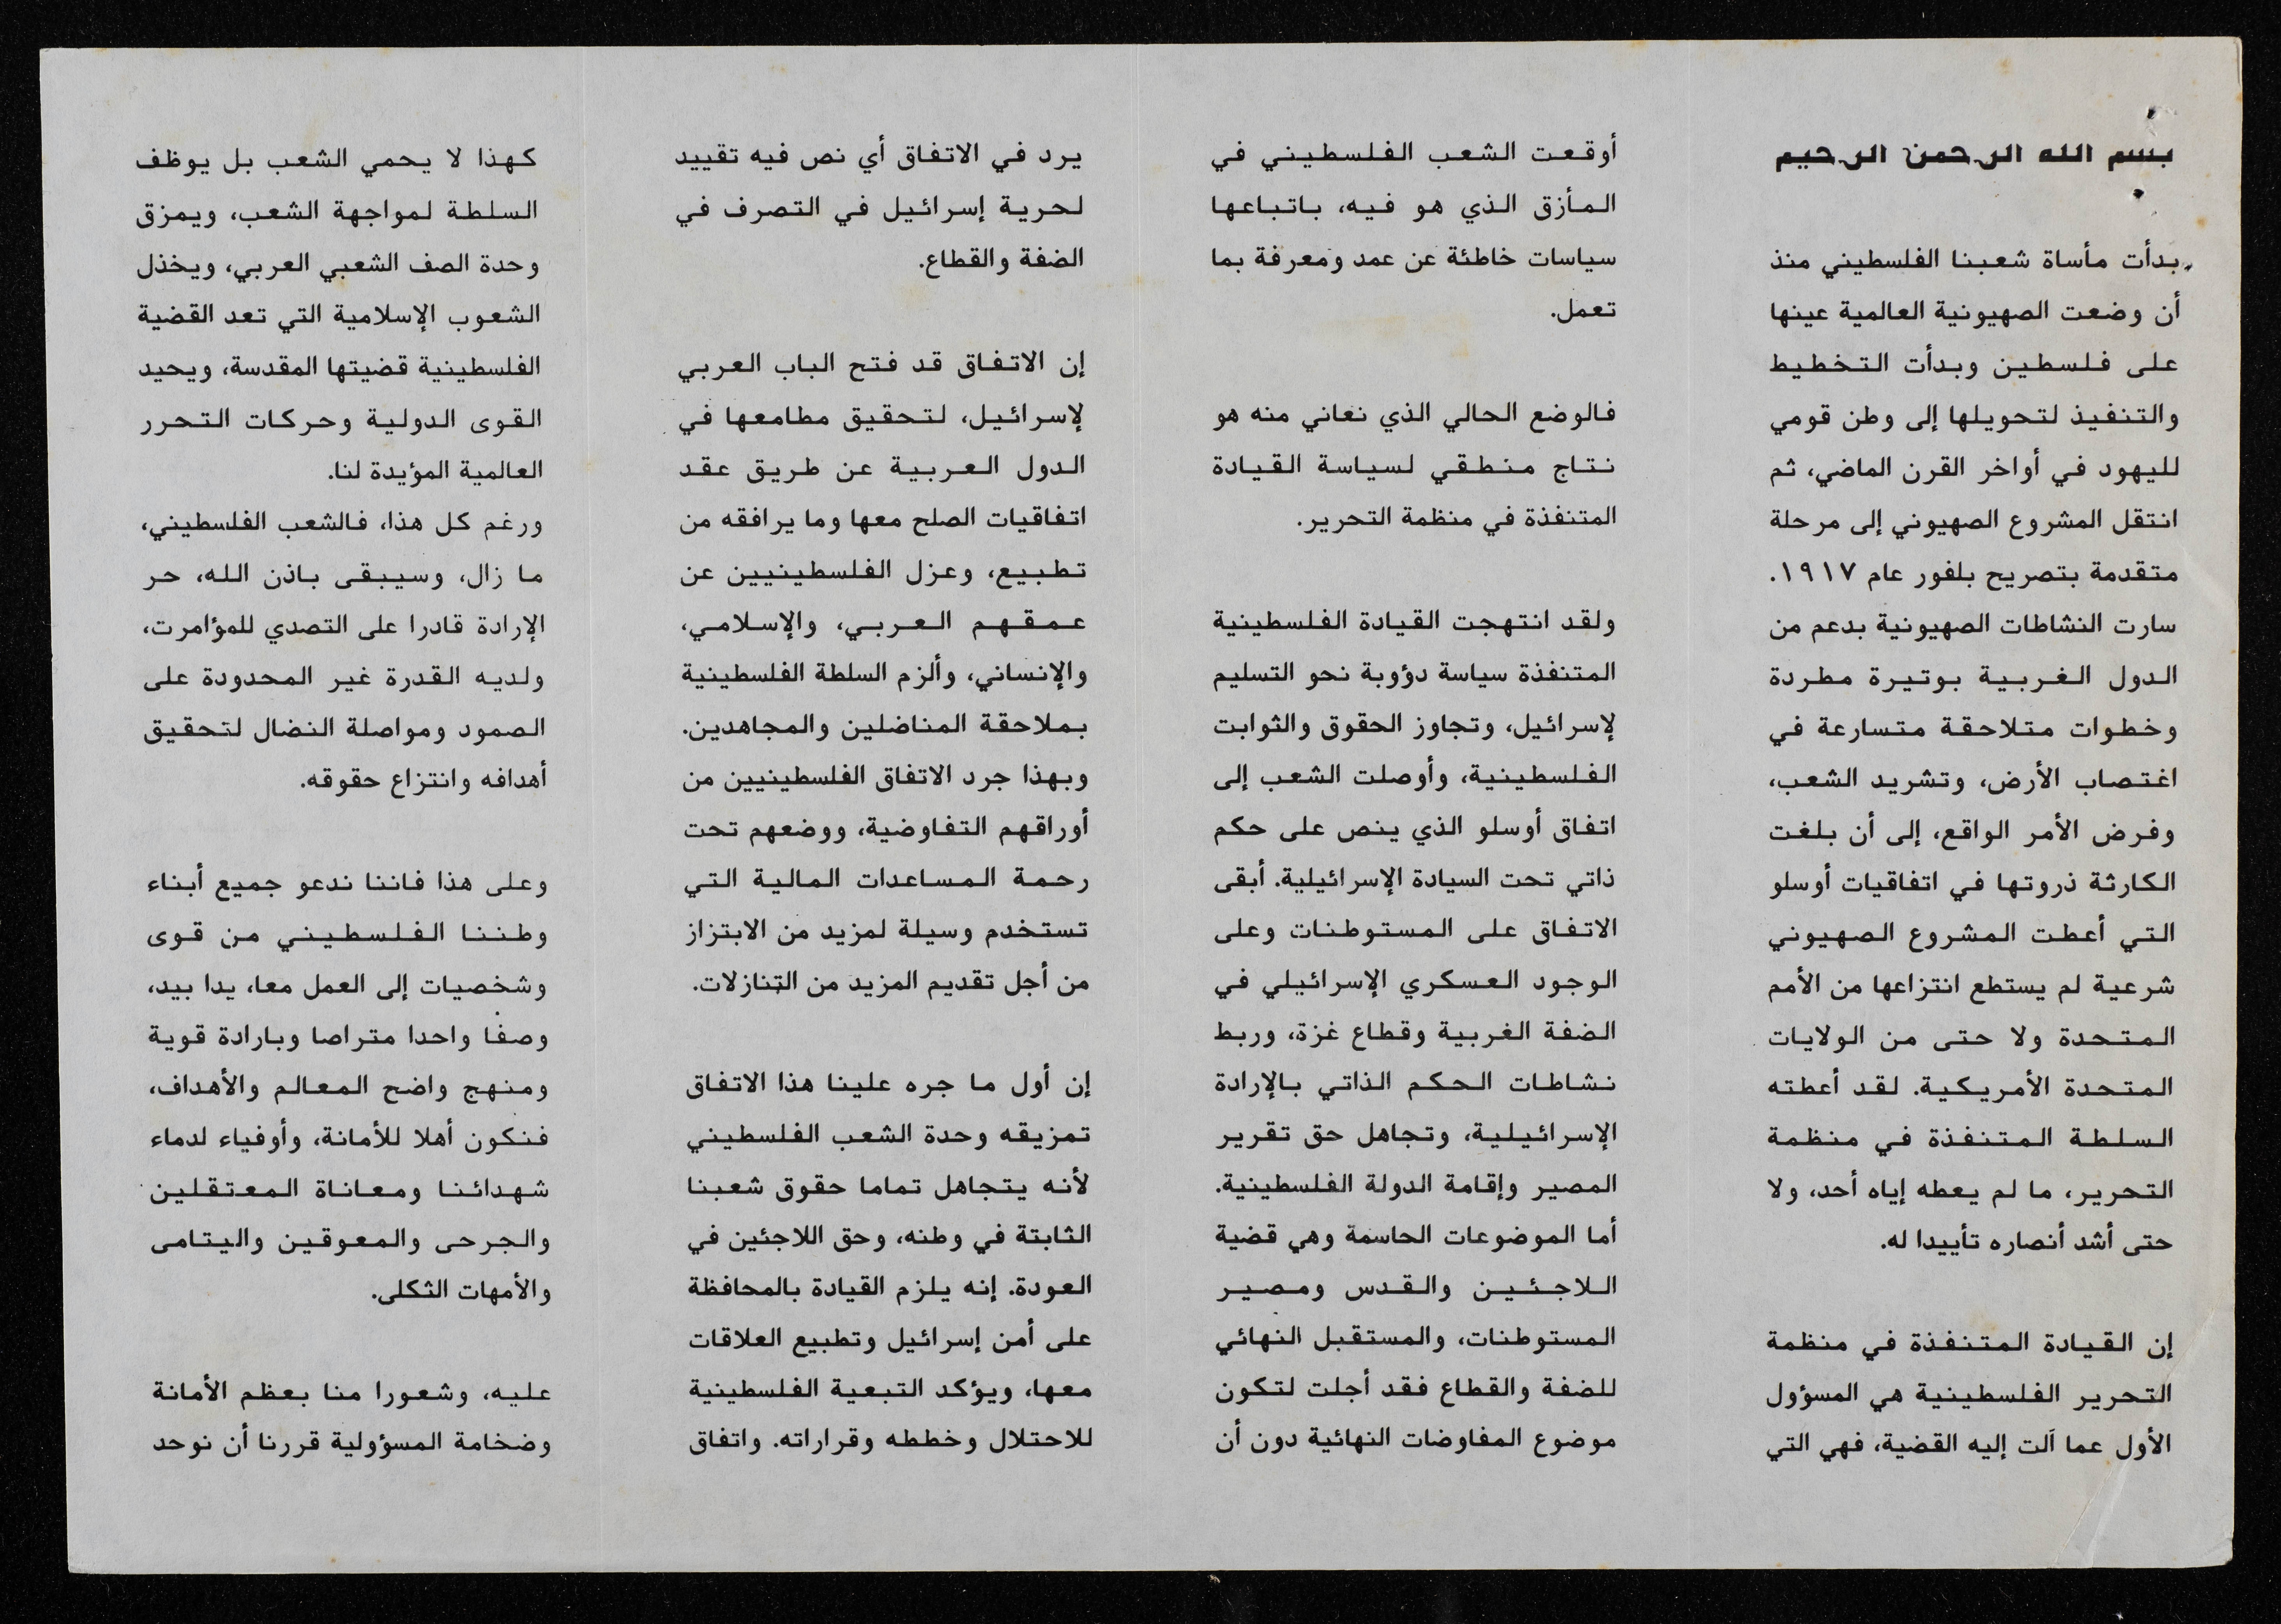 بسم الله الرحمن الرحيم
بدأت مأساة شعبنا الفلسطيني منذ
أن وضعت الصهيونية العالمية عينها
على فلسطين وبدأت التخطيط
والتنفيذ لتحويلها إلى وطن قومي
لليهود في أواخر القرن الماضي، ثم
انتقل المشروع الصهيوني إلى مرحلة
متقدمة بتصريح بلفور عام ١٩١٧.
سارت النشاطات الصهيونية بدعم من
الدول الغربية بوتيرة مطردة
وخطوات متلاحقة متسارعة في
اغتصاب الأرض، وتشريد الشعب،
وفرض الأمر الواقع، إلى أن بلغت
الكارثة ذروتها في اتفاقيات أوسلو
التي أعطت المشروع الصهيوني
شرعية لم يستطع انتزاعها من الأمم
المتحدة ولا حتى من الولايات
المتحدة الأمريكية. لقد أعطته
السلطة المتنفذة في منظمة
التحرير، ما لم يعطه إياه أحد، ولا
حتى أشد أنصاره تأييدا له.
إن القيادة المتنفذة في منظمة
التحرير الفلسطينية هي المسؤول
الأول عما آلت إليه القضية، فهي التي
أوقعت الشعب الفلسطيني في
المأزق الذي هو فيه، باتباعها
سياسات خاطئة عن عمد ومعرفة بما
تعمل.
فالوضع الحالي الذي نعاني منه هو
نتاج منطقي لسياسة القيادة
المتنفذة في منظمة التحرير.
ولقد انتهجت القيادة الفلسطينية
المتنفذة سياسة دؤوبة نحو التسليم
لإسرائيل، وتجاوز الحقوق والثوابت
الفلسطينية، وأوصلت الشعب إلى
اتفاق أوسلو الذي ينص على حكم
ذاتي تحت السيادة الإسرائيلية. أبقى
الاتفاق على المستوطنات وعلى
الوجود العسكري الإسرائيلي في
الضفة الغربية وقطاع غزة، وربط
نشاطات الحكم الذاتي بالإرادة
الإسرائيلية، وتجاهل حق تقرير
المصير وإقامة الدولة الفلسطينية.
أما الموضوعات الحاسمة وهي قضية
اللاجئين والقدس ومصير
المستوطنات، والمستقبل النهائي
للضفة والقطاع فقد أجلت لتكون
موضوع المفاوضات النهائية دون أن
يرد في الاتفاق أي نص فيه تقييد
لحرية إسرائيل في التصرف في
الضفة والقطاع.
إن الاتفاق قد فتح الباب العربي
لإسرائيل، لتحقيق مطامعها في
الدول العربية عن طريق عقد
اتفاقيات الصلح معها وما يرافقه من
تطبيع، وعزل الفلسطينيين عن
عمقهم العربي، والإسلامي،
والإنساني، وألزم السلطة الفلسطينية
بملاحقة المناضلين والمجاهدين.
وبهذا جرد الاتفاق الفلسطينيين من
أوراقهم التفاوضية، ووضعهم تحت
رحمة المساعدات المالية التي
تستخدم وسيلة لمزيد من الابتزاز
من أجل تقديم المزيد من التنازلات.
إن أول ما جره علينا هذا الاتفاق
تمزيقه وحدة الشعب الفلسطيني
لأنه يتجاهل تماما حقوق شعبنا
الثابتة في وطنه، وحق اللاجئين في
العودة. إنه يلزم القيادة بالمحافظة
على أمن إسرائيل وتطبيع العلاقات
معها، ويؤكد التبعية الفلسطينية
للاحتلال وخططه وقراراته. واتفاق
كهذا لا يحمي الشعب بل يوظف
السلطة لمواجهة الشعب، ويمزق
وحدة الصف الشعبي العربي، ويخذل
الشعوب الإسلامية التي تعد القضية
الفلسطينية قضيتها المقدسة، ويحيد
القوى الدولية وحركات التحرر
العالمية المؤيدة لنا.
ورغم كل هذا، فالشعب الفلسطيني،
ما زال، وسيبقى باذن الله، حر
الإرادة قادرا على التصدي للمؤامرت،
ولديه القدرة غير المحدودة على
الصمود ومواصلة النضال لتحقيق
أهدافه وانتزاع حقوقه.
وعلى هذا فاننا ندعو جميع أبناء
وطننا الفلسطيني من قوى
وشخصيات إلى العمل معا، يدا بيد،
وصفا واحدا متراصا وبارادة قوية
ومنهج واضح المعالم والأهداف،
فنكون أهلا للأمانة، وأوفياء لدماء
شهدائنا ومعاناة المعتقلين
والجرحى والمعوقين واليتامى
والأمهات الثكلى.
عليه، وشعورا منا بعظم الأمانة
وضخامة المسؤولية قررنا أن نوحد